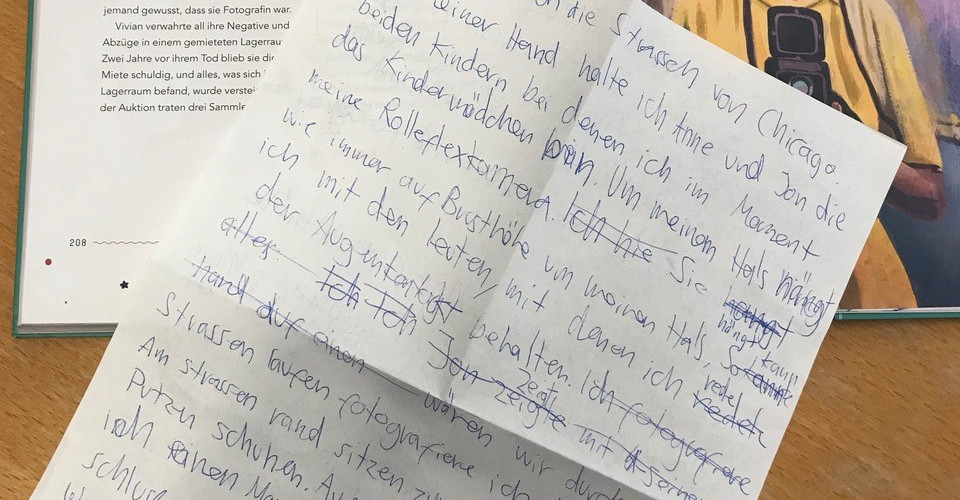 jemand gewusst, dass sie Fotografin war.
Vivian verwahrte all ihre Negative und
Abzüge in einem gemieteten Lagerrau
Zwei Jahre vor ihrem Tod blieb sie die
Miete schuldig, und alles, was sich i
Lagerraum befand, wurde verstei
der Auktion traten drei Sammle
208
die Strassen von Chicago.
einer Hand halte ich Anne und Jan die
beiden Kindern bei denen ich im Moment
das Kindermädchen bin. Um meinem Hals hängt
meine Rolleflexkamera. Ich hie Sie hengt
hängt
wie immer auf Busthöhe um meinen Hals, So kann
ich mit den Leuten, mit denen ich redet
der Augenkontakt behalten. Ich fotografiere
alles Ich Ich Jan zeigte mit seiner
zeigt
Hand auf einen
Strassen laufen wären wir durch
Am strassen rand fotografiere ich
Putzen schuhen. sitzen zw
ich einen Ma
schluss